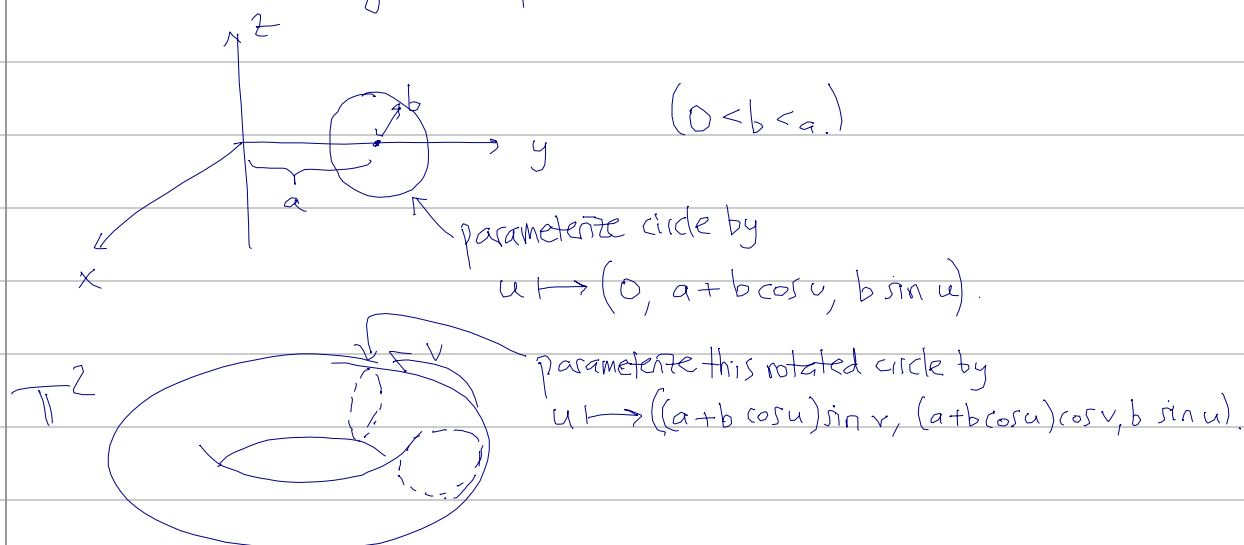 z
b
(0 < b < a.)
y
a
parameterize circle by
x
u ↦ (0, a + b cos u, b sin u).
v
parameterize this rotated circle by
𝕋²
u ↦ ((a + b cos u) sin v, (a + b cos u) cos v, b sin u).